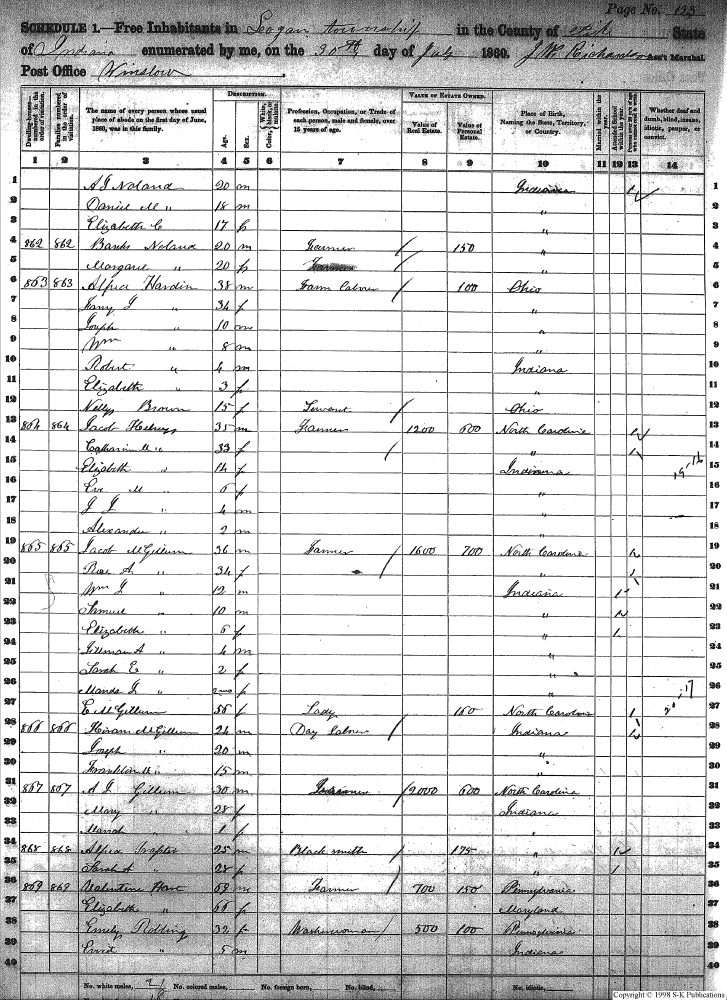 Page No. 123
SCHEDULE 1.—Free Inhabitants in Logan township in the County of State
of Indiana enumerated by me, on the 30th day of July 1860. J. W. Richardson Ass't Marshal.
Post Office Winslow
Dwelling-houses— numbered in the order of visitation.
Families numbered in the order of visitation.
The name of every person whose usual place of abode on the first day of June, 1860, was in this family.
DESCRIPTION.
Age.
Sex.
Color, White, black, or mulatto.
Profession, Occupation, or Trade of each person, male and female, over 15 years of age.
VALUE OF ESTATE OWNED.
Value of Real Estate.
Value of Personal Estate.
Place of Birth, Naming the State, Territory, or Country.
Married within the year.
Attended School within the year.
Whether deaf and dumb, blind, insane, idiotic, pauper, or convict.
1 2 3 4 5 6 7 8 9 10 11 12 13 14
1 A J Noland 20 m Indiana 1
2 Daniel M " 18 m "
3 Elizabeth C 17 f "
4 862 862 Banks Noland 20 m Farmer / 150 " 4
5 Margaret " 20 f / " 5
6 863 863 Alfred Hardin 38 m Farm Labour / 100 Ohio 6
7 " 34 f " 7
8 Joseph " 10 m " 8
9 Wm " 8 m " 9
10 Robert " 4 m Indiana 10
11 Elizabeth " 3 f " 11
12 Brown 15 f Servant / Ohio 12
13 864 864 Jacob 35 m Farmer 1200 600 North Carolina 13
14 Catharine M " 33 f / " 14
15 Elizabeth " 14 f Indiana 15
16 M " 6 f " 16
17 " 4 m " 17
18 Alexander " 2 m " 18
19 865 865 Jacob McGillum 36 m Farmer / 1600 700 North Carolina 19
20 Rose A " 34 f / " 20
21 Wm J " 12 m Indiana 1 21
22 Samuel " 10 m " 22
23 Elizabeth " 6 f " 1 23
24 Gillman A " 4 m " 24
25 Sarah E " 2 f " 25
26 " f " 26
27 E McGillum 56 f Lady 160 North Carolina 1 27
28 866 866 Hiram McGillum 24 m Day Labour / Indiana 28
29 Joseph " 20 m " 29
30 Franklin " 15 m "
31 867 867 A J Gillum 30 m / 2000 600 North Carolina 31
32 Mary " 28 f Indiana 32
33 " 1 f " 33
34 868 868 Alfred 25 m Blacksmith / 175 " 34
35 Sarah A " 28 f " 35
36 869 869 Valentine 63 m Farmer / 700 150 Pennsylvania 36
37 Elizabeth " 66 f Maryland 37
38 Emely Robling 32 f Washerwoman / 500 100 Pennsylvania 38
39 " 5 m Indiana
40 40
No. white males, No. colored males, No. foreign born, No. blind, No. idiotic,
Copyright © 1998 S-K Publications